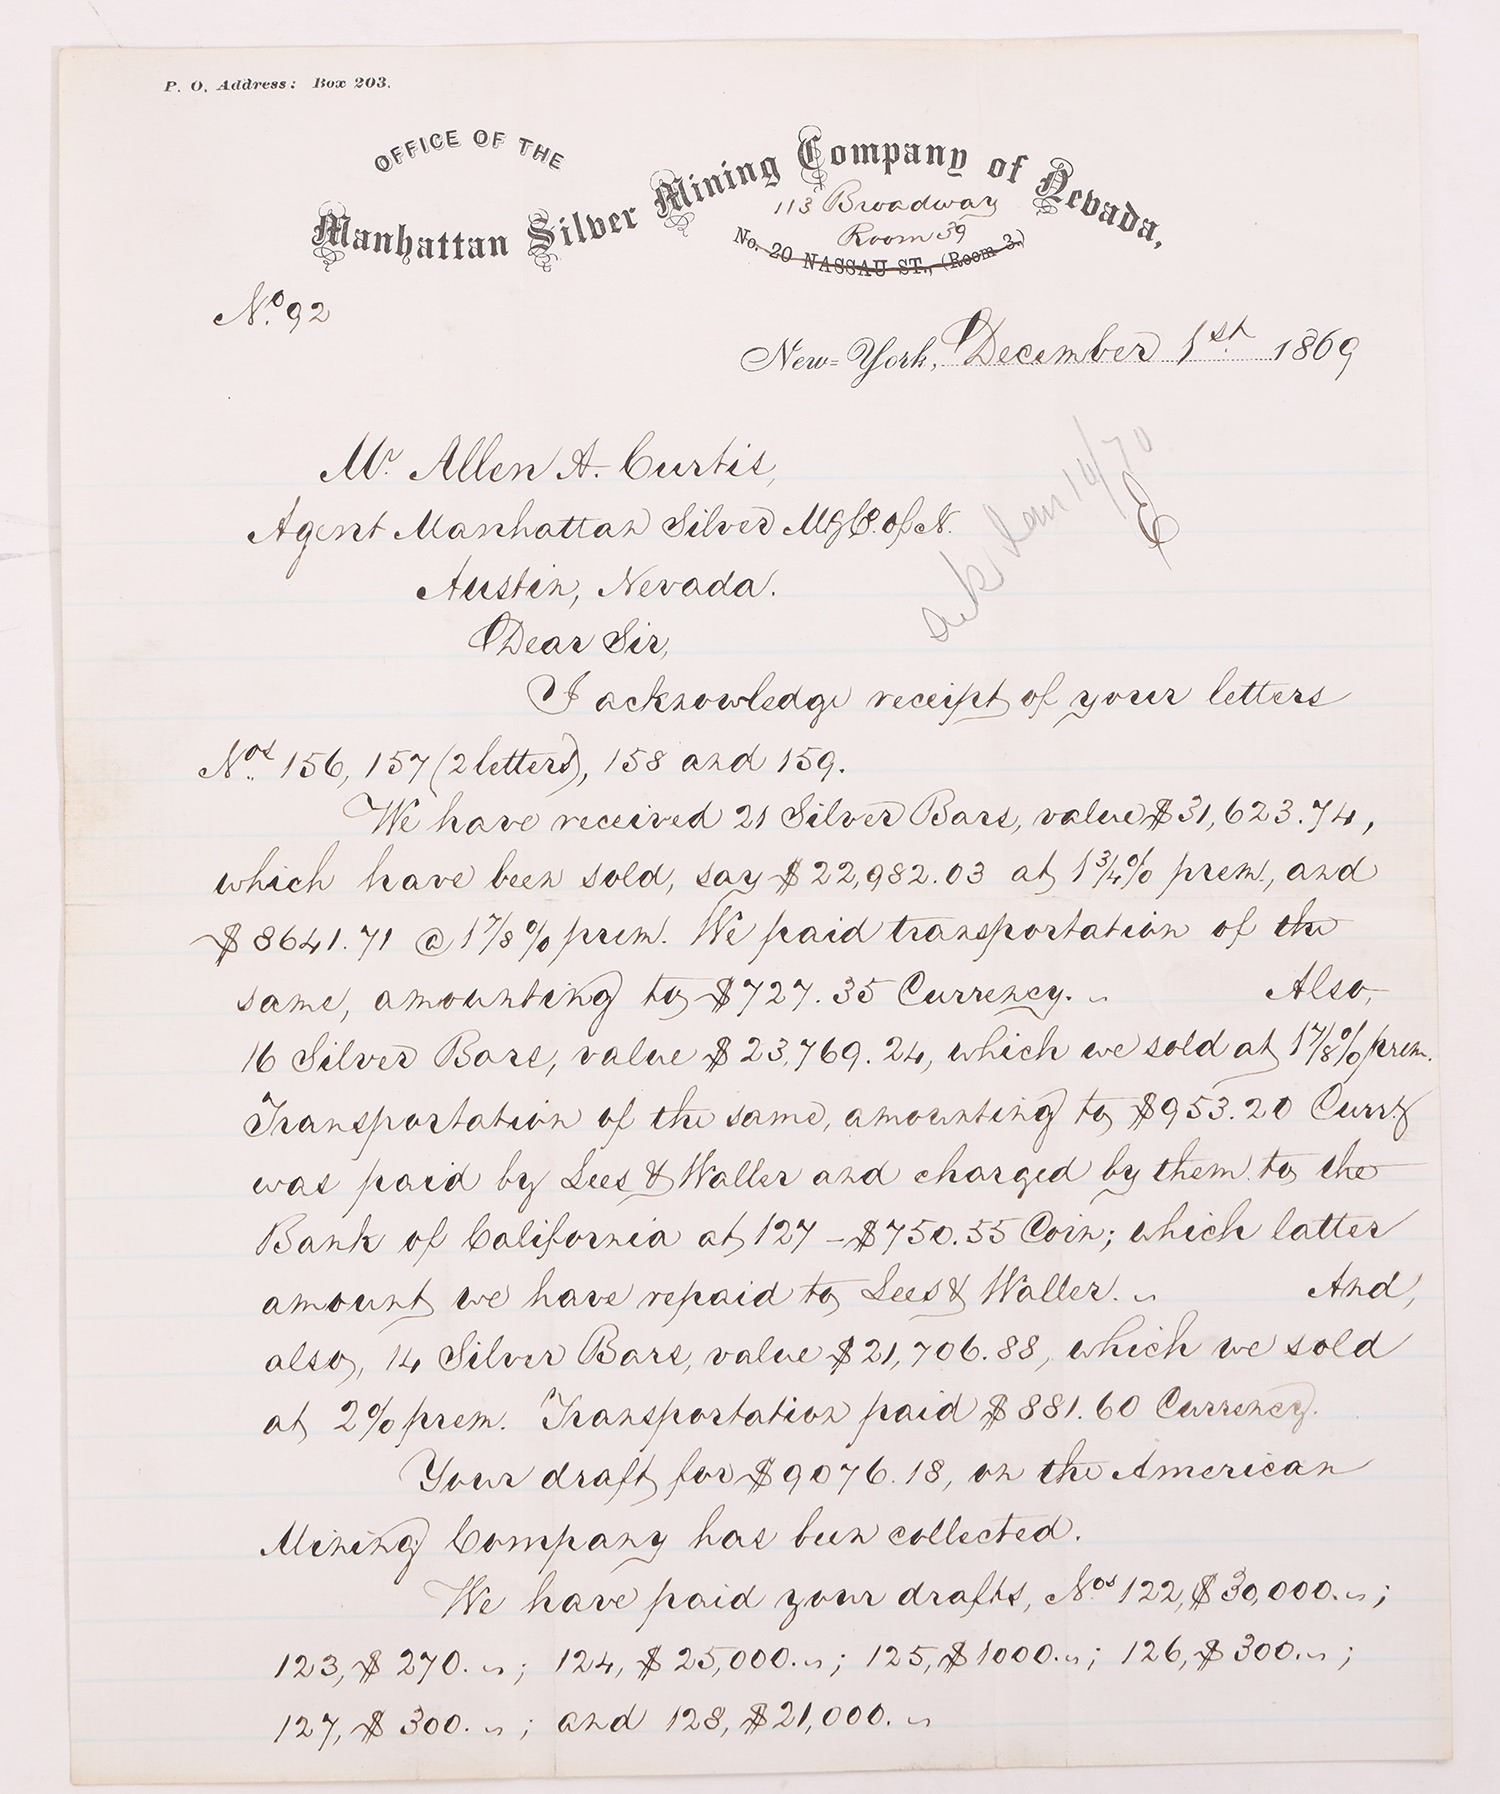 P. O. Address: Box 203.
OFFICE OF THE
Manhattan Silver Mining Company of Nevada,
113 Broadway
Room 39
No. 20 NASSAU ST., (Room 3.)
No. 92
New-York, December 1st. 1869
Mr. Allen A. Curtis,
Agent Manhattan Silver Mg Co. of N.
Austin, Nevada.
ack Jan 10/70
C
Dear Sir,
I acknowledge receipt of your letters
Nos. 156, 157 (2 letters), 158 and 159.
We have received 21 Silver Bars, value $31,623.74,
which have been sold, say $22,982.03 at 1 3/4% prem., and
$8641.71 @ 1 7/8% prem. We paid transportation of the
same, amounting to $727.35 Currency. Also,
16 Silver Bars, value $23,769.24, which we sold at 1 7/8% prem.
Transportation of the same, amounting to $953.20 Curry
was paid by Lees & Waller and charged by them to the
Bank of California at 127 - $750.55 Coin; which latter
amount we have repaid to Lees & Waller. And,
also, 14 Silver Bars, value $21,706.88, which we sold
at 2% prem. Transportation paid $881.60 Currency.
Your draft for $9076.18, on the American
Mining Company has been collected.
We have paid your drafts, Nos. 122, $30,000. ;
123, $270. ; 124, $25,000. ; 125, $1000. ; 126, $300. ;
127, $300. ; and 128, $21,000.